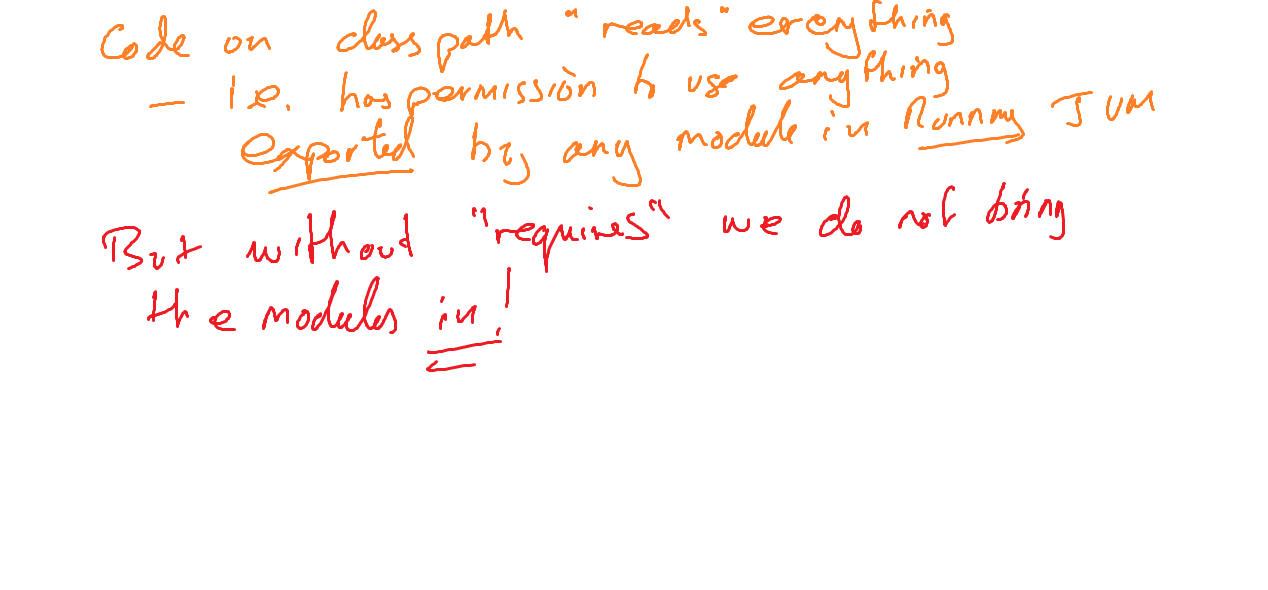 Code on classpath "reads" everything
— I.e. has permission to use anything
exported by any module in Running JVM
But without "requires" we do not bring
the modules in!